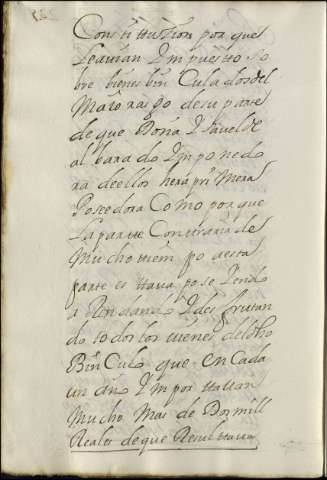 Constittuzion porque
se avian Ympuesto so
bre bienes bin Culados del
Maiorasgo de su parte
de que Doña Ysavel de
albarado Ymponedo
ra de ellos hera pri Mera
Poseedora Como porque
la parte Contraria de
Mucho tiempo a esta
parte es ttava pose Yendo
a Rendando Y des frutan
do todos los vienes del dho
Binculo que en Cada
un año Ymporttavan
Mucho Mas de Dosmill
Reales de que Resulttava